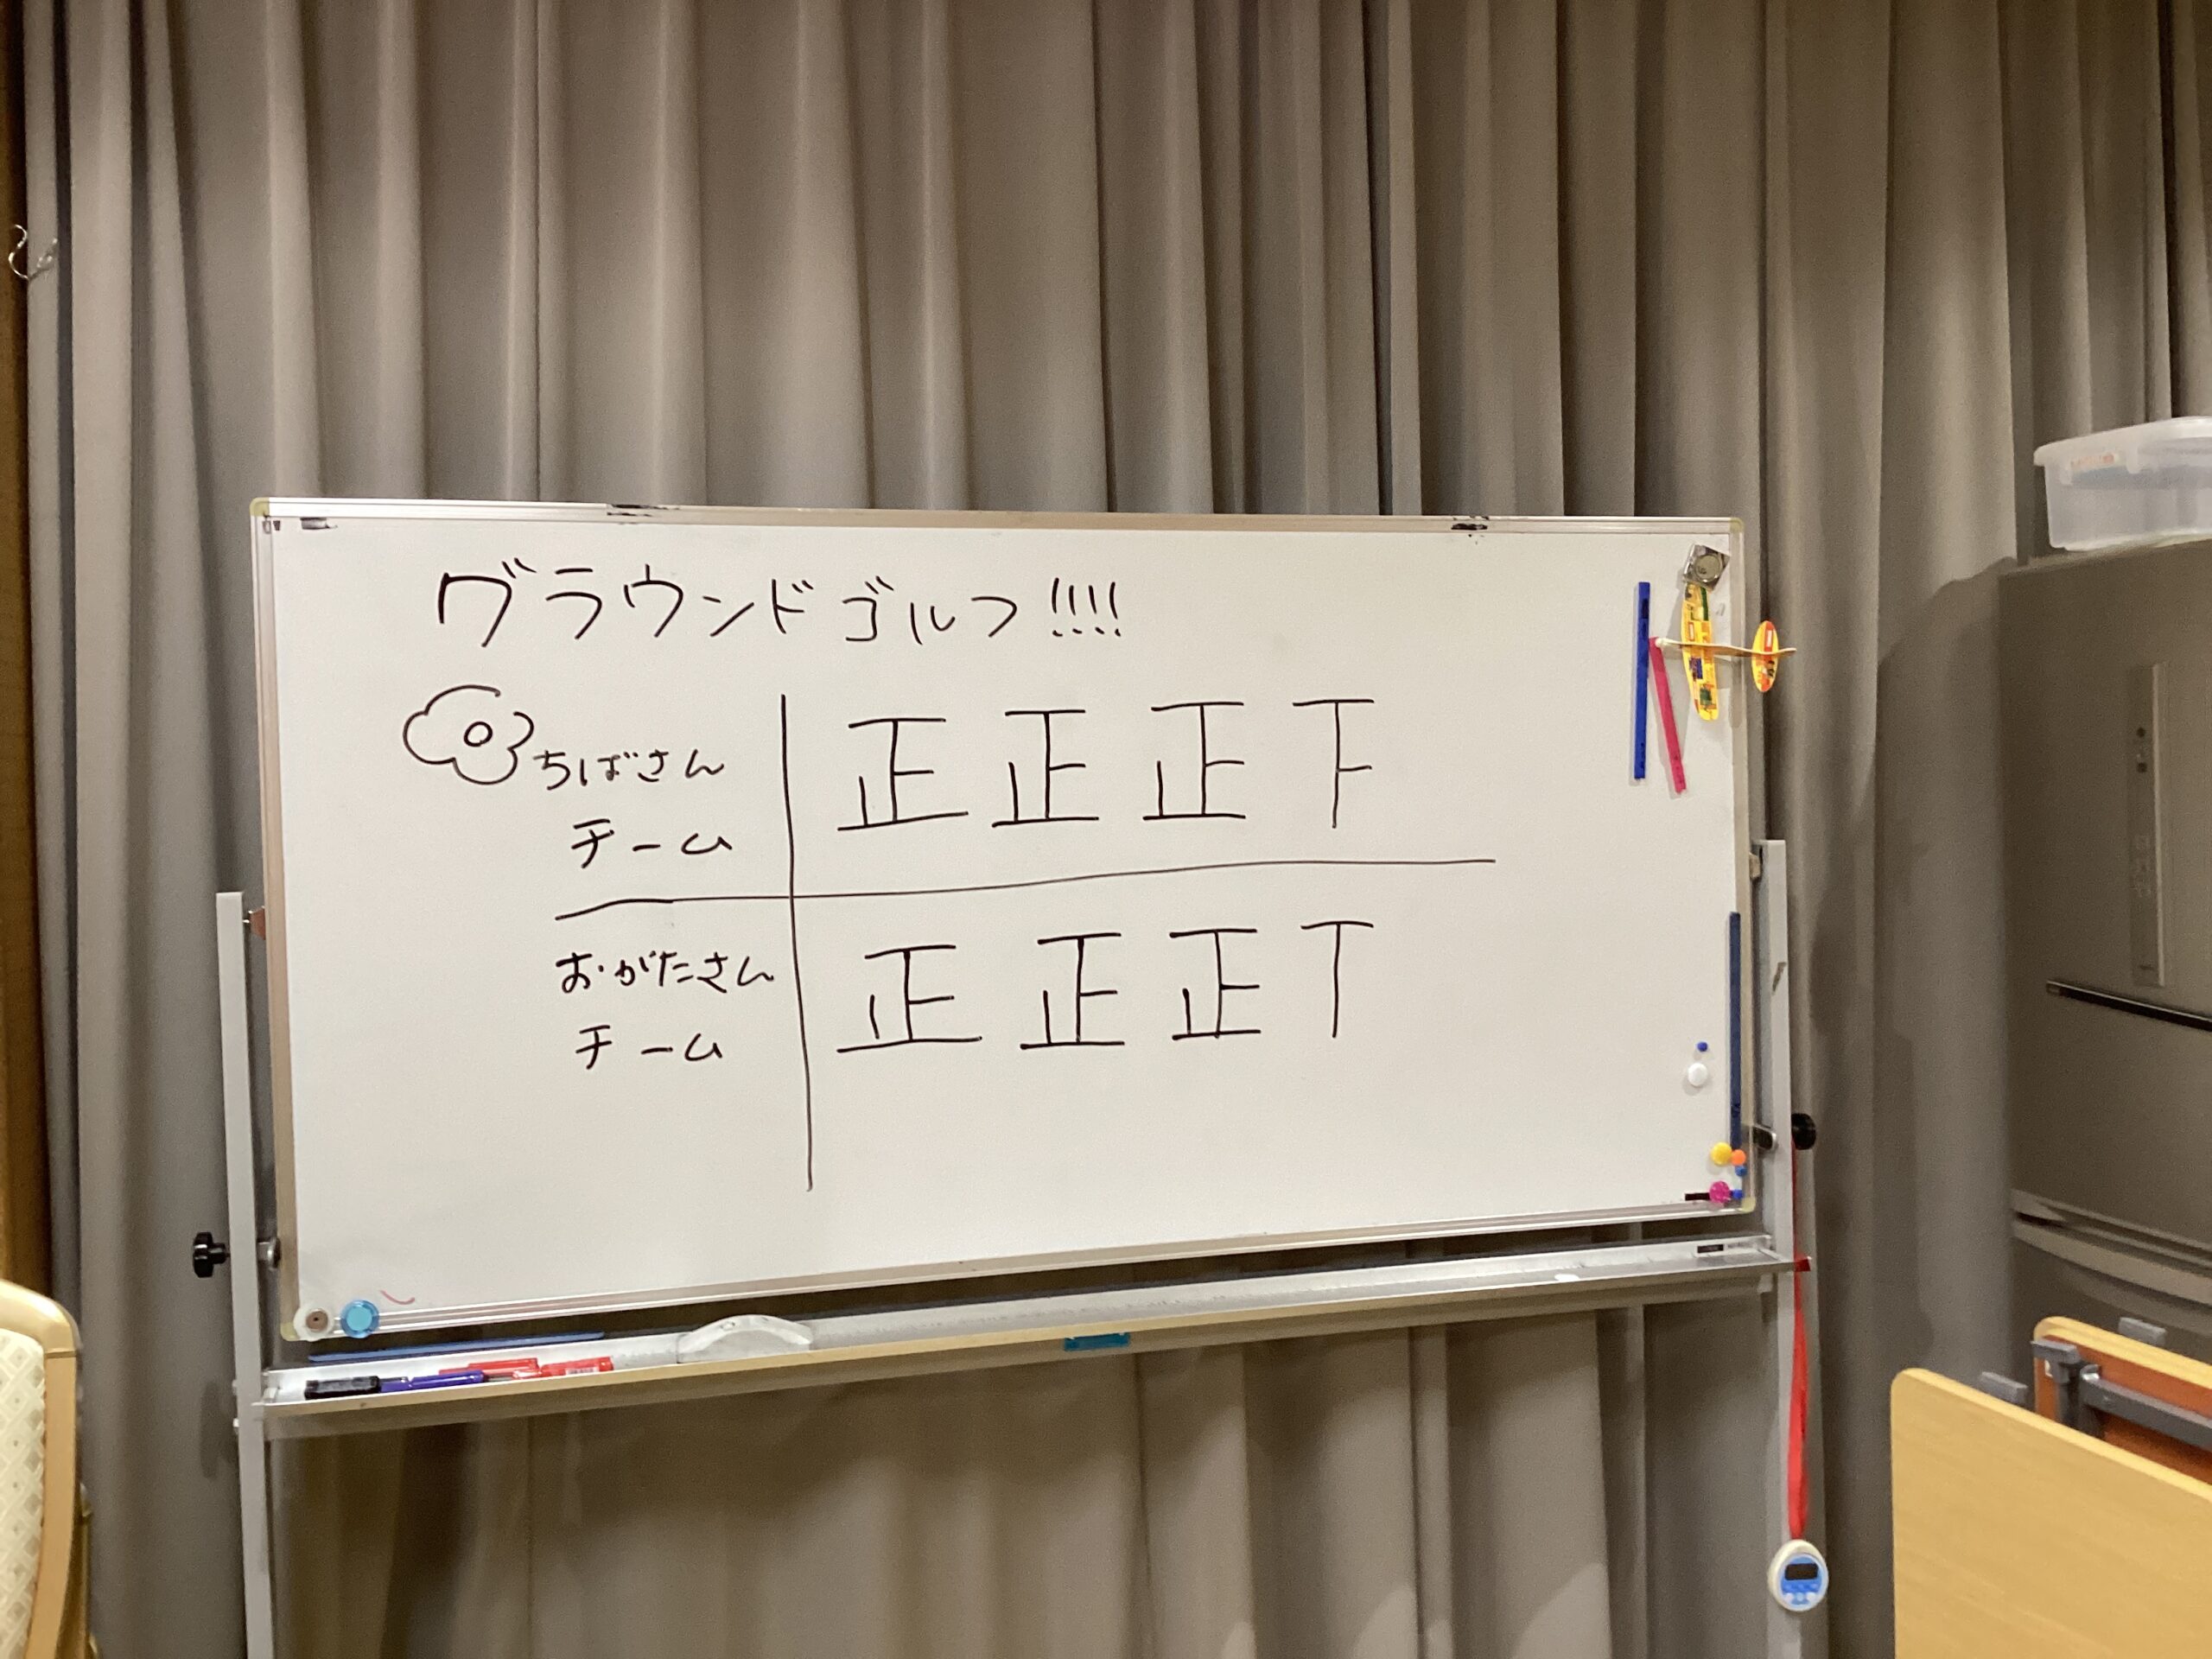 グラウンドゴルフ!!!!
ちばさん
チーム
正正正下
おがたさん
チーム
正正正丅